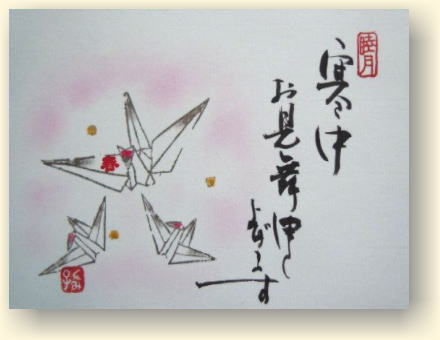 睦月
寒中
お見舞申し
上げます
春